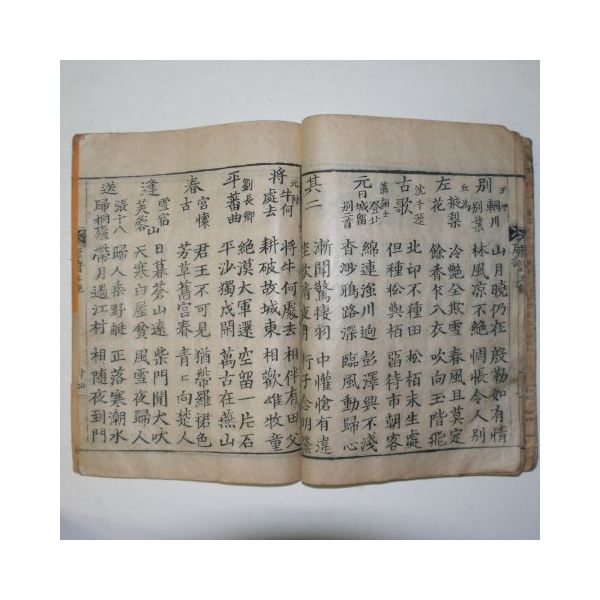 別輞川別業 山月曉仍在 殷勤如有情
林風凉不絶 惆悵令人別
左掖梨花 丘為 冷艶全欺雪 春風且莫定
餘香乍入衣 吹向玉階飛
古歌 沈千運 北邙不種田 松栢未生處
但種松與栢 留待市朝客
元日登北城留別 綿連強川逈 彭澤興不淺
杳渺鴉路深 臨風動歸心
其二 漸聞驚棲羽 中懽愴有違
清夜月 行子念明
將牛何處去 元結 將牛何處去 相伴有田父
耕破故城東 相歡雄牧童
平蕃曲 劉長卿 絶漠大軍還 空留一片石
平沙獨戍開 萬古在燕山
春古宮懷 君王不可見 猶帶羅裙色
芳草舊宮春 青口向楚人
逢雪宿芙蓉山 日暮蒼山遠 柴門聞犬吠
天寒白屋貧 風雪夜歸人
送張十八歸桐廬 歸人乘野艇 正落寒潮水
帶月過江村 相随夜到門